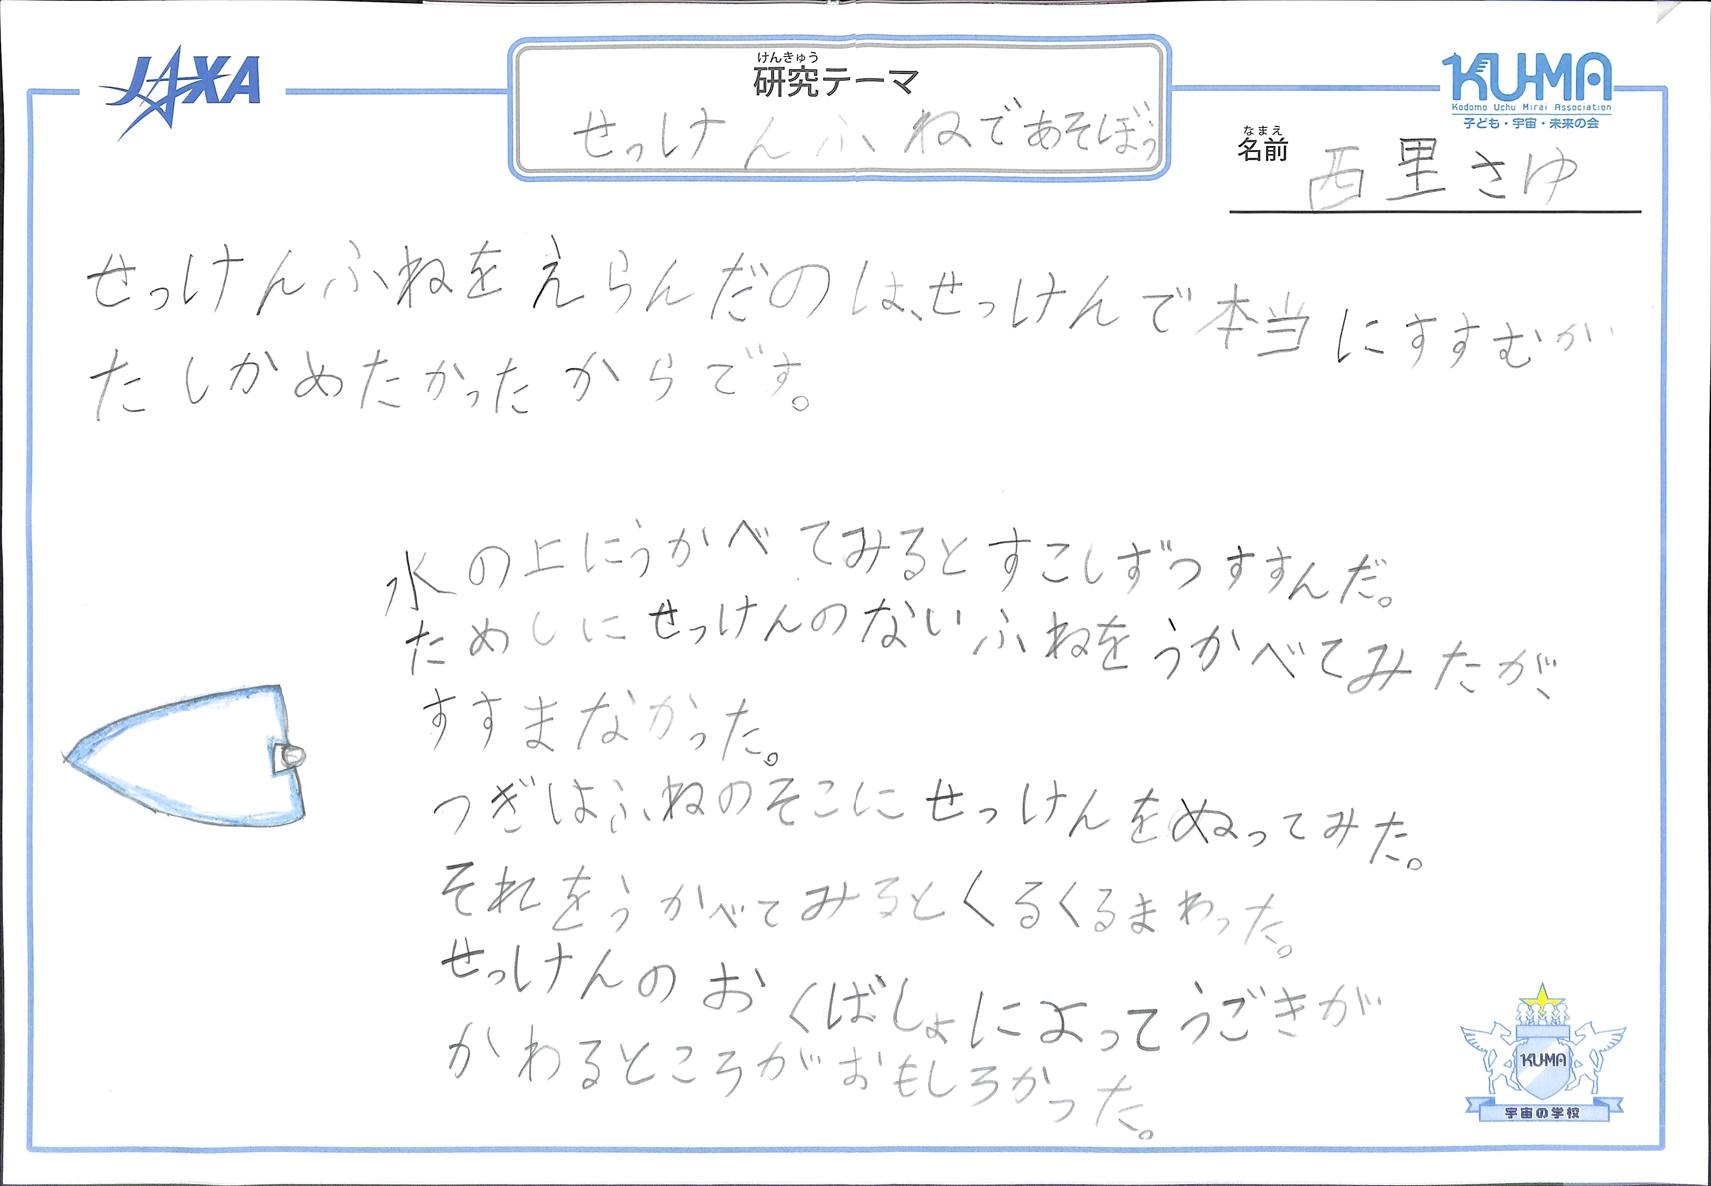 JAXA
けんきゅう
研究テーマ
せっけんふねであそぼう
KU-MA
Kodomo Uchu Mirai Association
子ども・宇宙・未来の会
なまえ
名前
西里さゆ
せっけんふねをえらんだのは、せっけんで本当にすすむか
たしかめたかったからです。
水の上にうかべてみるとすこしずつすすんだ。
ためしにせっけんのないふねをうかべてみたが、
すすまなかった。
つぎはふねのそこにせっけんをぬってみた。
それをうかべてみるとくるくるまわった。
せっけんのおくばしょによってうごきが
かわるところがおもしろかった。
KU-MA
宇宙の学校